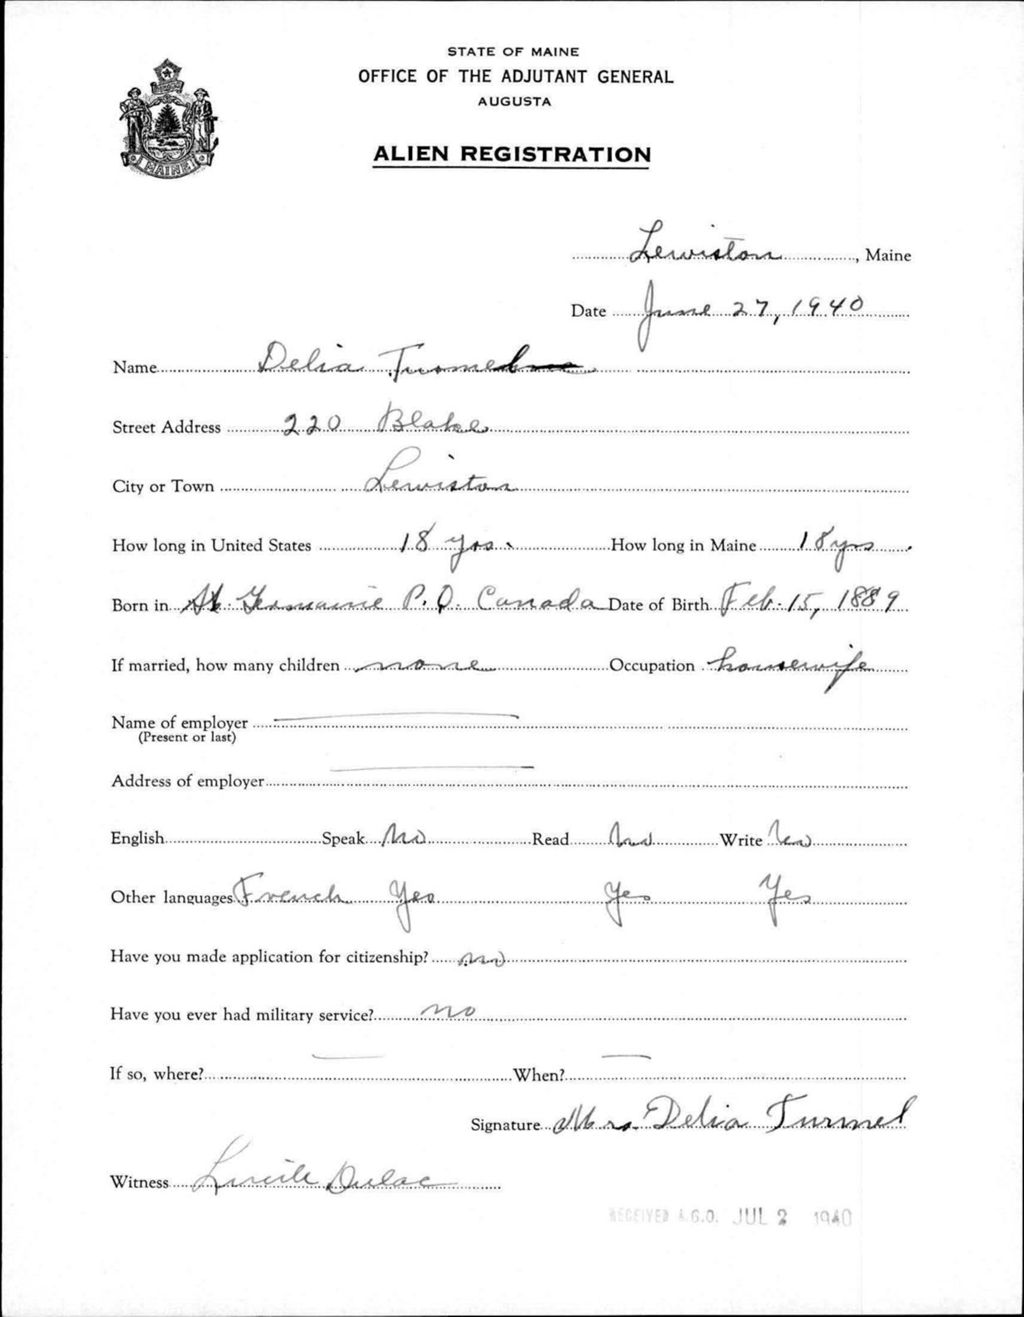 STATE OF MAINE
OFFICE OF THE ADJUTANT GENERAL
AUGUSTA
ALIEN REGISTRATION
MAINE
Lewiston, Maine
Date June 27, 1940
Name Delia Turmel
Street Address 220 Blake
City or Town Lewiston
How long in United States 18 yrs. How long in Maine 18 yrs.
Born in St. Germaine P. Q. Canada Date of Birth Feb. 15, 1889
If married, how many children none Occupation housewife
Name of employer
(Present or last)
Address of employer
English Speak No Read No Write No
Other languages French Yes Yes Yes
Have you made application for citizenship? no
Have you ever had military service? no
If so, where? When?
Signature Mrs. Delia Turmel
Witness Lucile Dulac
RECEIVED A.G.O. JUL 2 1940